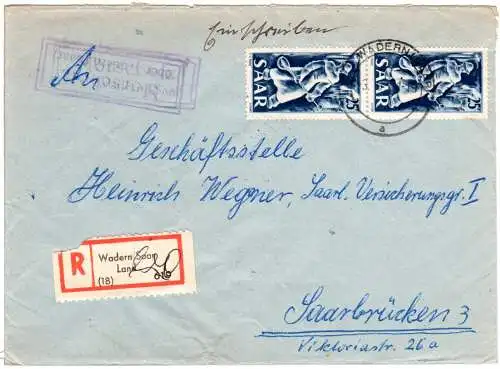 Einschreiben
WADERN
SAAR
25
SAAR
25
a
An
Geschäftsstelle
Heinrich Wegner, Saarl. Versicherungsgr. I
R
Wadern Saar
Land
(18)
Saarbrücken 3
Viktoriastr. 26a